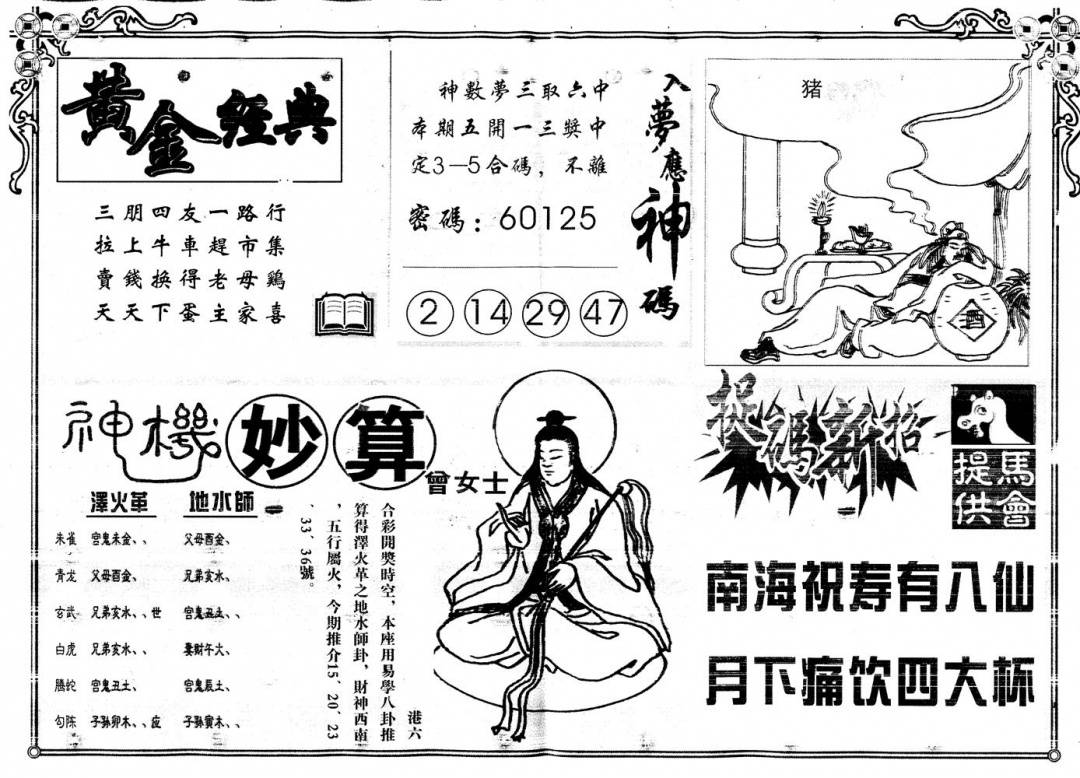 黃金經典
三朋四友一路行
拉上牛車趕市集
賣錢换得老母鷄
天天下蛋主家喜
神數夢三取六中
本期五開一三獎中
定3—5合碼，不離
密碼：60125
2 14 29 47
入夢應神碼
猪
酒
神機妙算
曾女士
澤火革 地水師
朱雀 官鬼未金、、 父母酉金、
青龙 父母酉金、 兄弟亥水、
玄武 兄弟亥水、、世 官鬼丑土、、
白虎 兄弟亥水、、 妻財午火、
螣蛇 官鬼丑土、 官鬼辰土、
勾陈 子孫卯木、、应 子孫寅木、、
港六
合彩開獎時空，本座用易學八卦推
算得澤火革之地水師卦，財神西南
，五行屬火，今期推介15、20、23
、33、36號。
捉碼新招
馬會提供
南海祝寿有八仙
月下痛饮四大杯